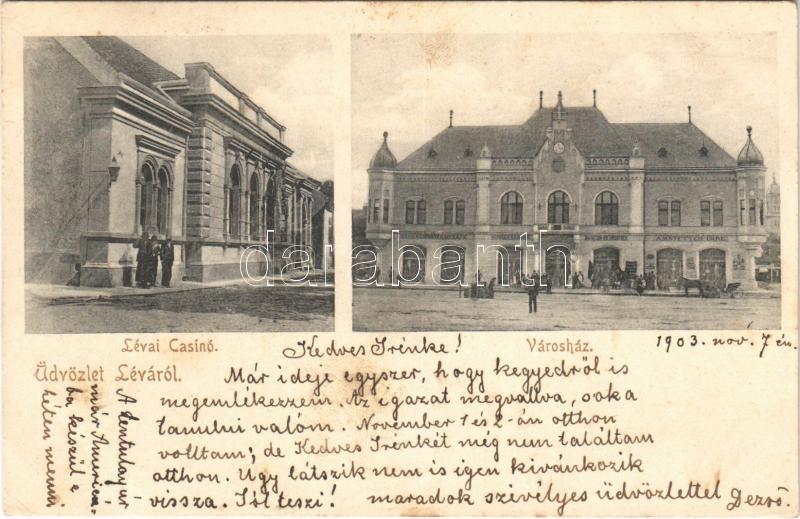 Lévai Casinó.
Városház.
Üdvözlet Léváról.
1903. nov. 7 én.
Kedves Irénke!
Már ideje egyszer, hogy kegyedről is
megemlékezzem. Az igazat megvallva, soka
tanulni valóm. November 1 és 2-án otthon
volltam; de Kedves Irénkét még nem találtam
otthon. Ugy látszik nem is igen kivánkozik
vissza. Jól teszi! maradok szivélyes üdvözlettel Dezső.
már Ameriká-
ba készül e
héten menni
darabanth